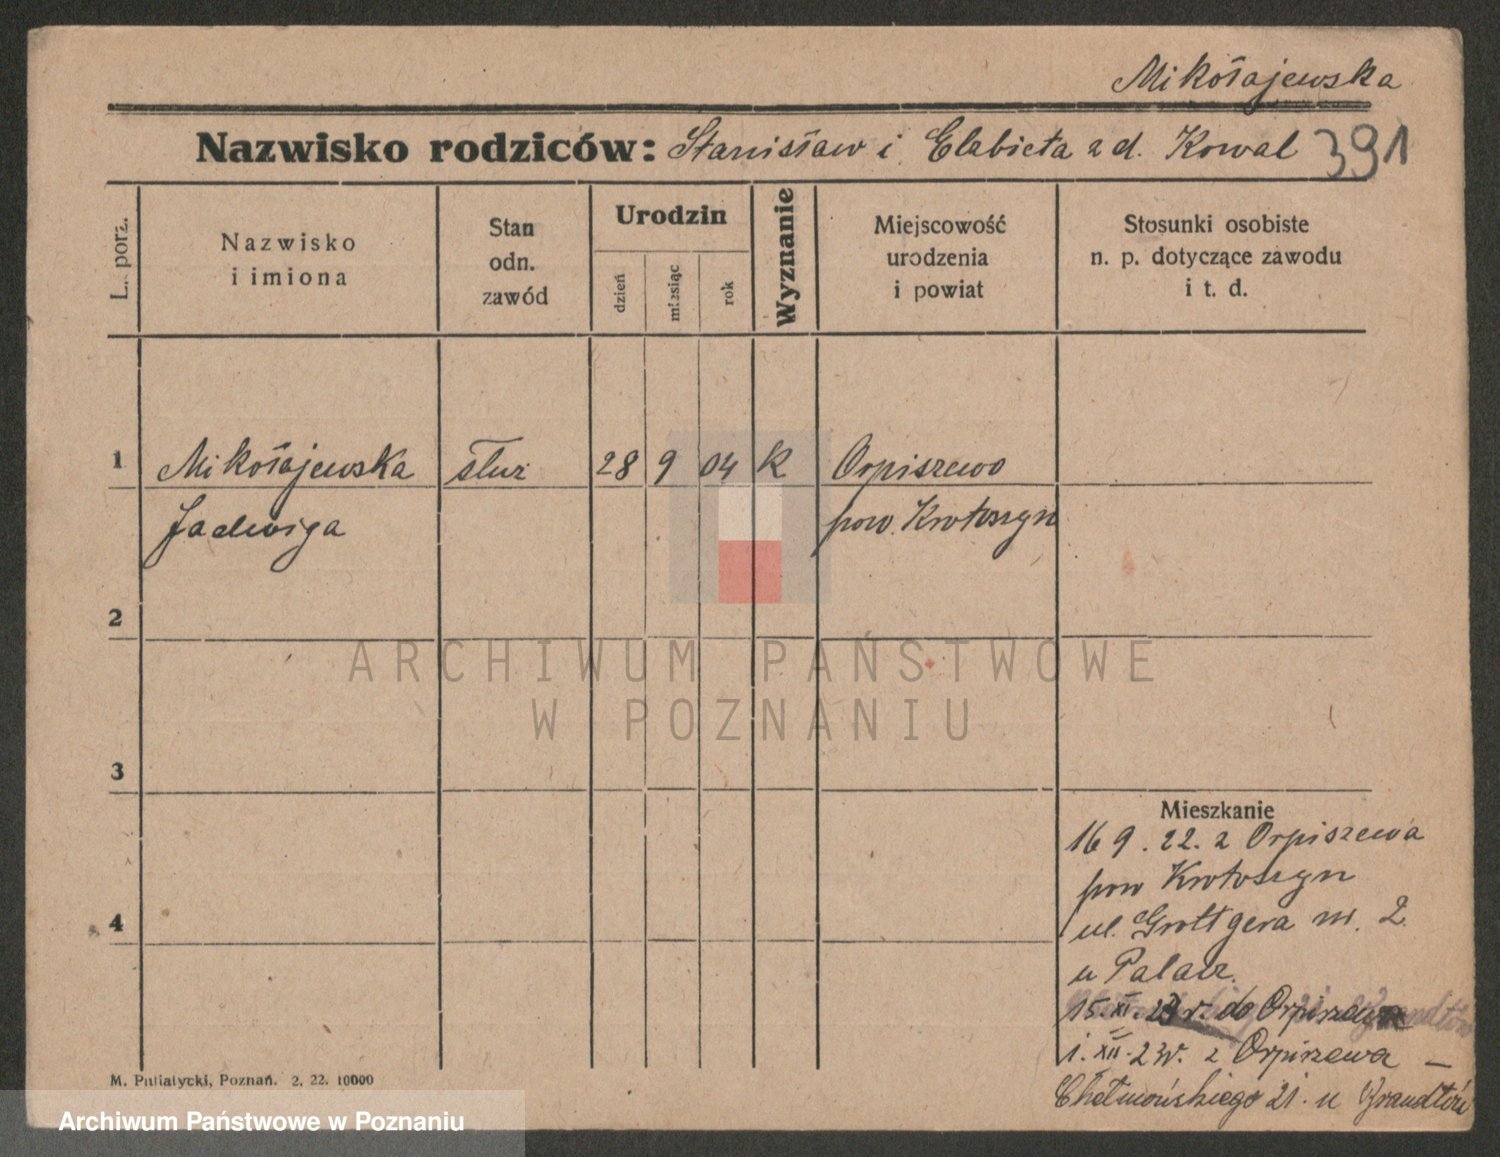 Mikołajewska
Nazwisko rodziców: Stanisław i Elżbieta z d. Kowal 391
L. porz.
Nazwisko i imiona
Stan odn. zawód
Urodzin
dzień
miesiąc
rok
Wyznanie
Miejscowość urodzenia i powiat
Stosunki osobiste n. p. dotyczące zawodu i t. d.
1 Mikołajewska służ 28 9 04 K Orpiszewo
Jadwiga pow. Krotoszyn
2
3
4
Mieszkanie
16 9. 22. z Orpiszewa
pow Krotoszyn
ul. Grottgera nr. 2
u Palacz.
15. XI. 23 r. do Orpiszewa
1. XII. 23r. z Orpiszewa –
Chełmońskiego 21. u Brandtów
M. Putiatycki, Poznań. 2. 22. 10000
ARCHIWUM PAŃSTWOWE
W POZNANIU
Archiwum Państwowe w Poznaniu